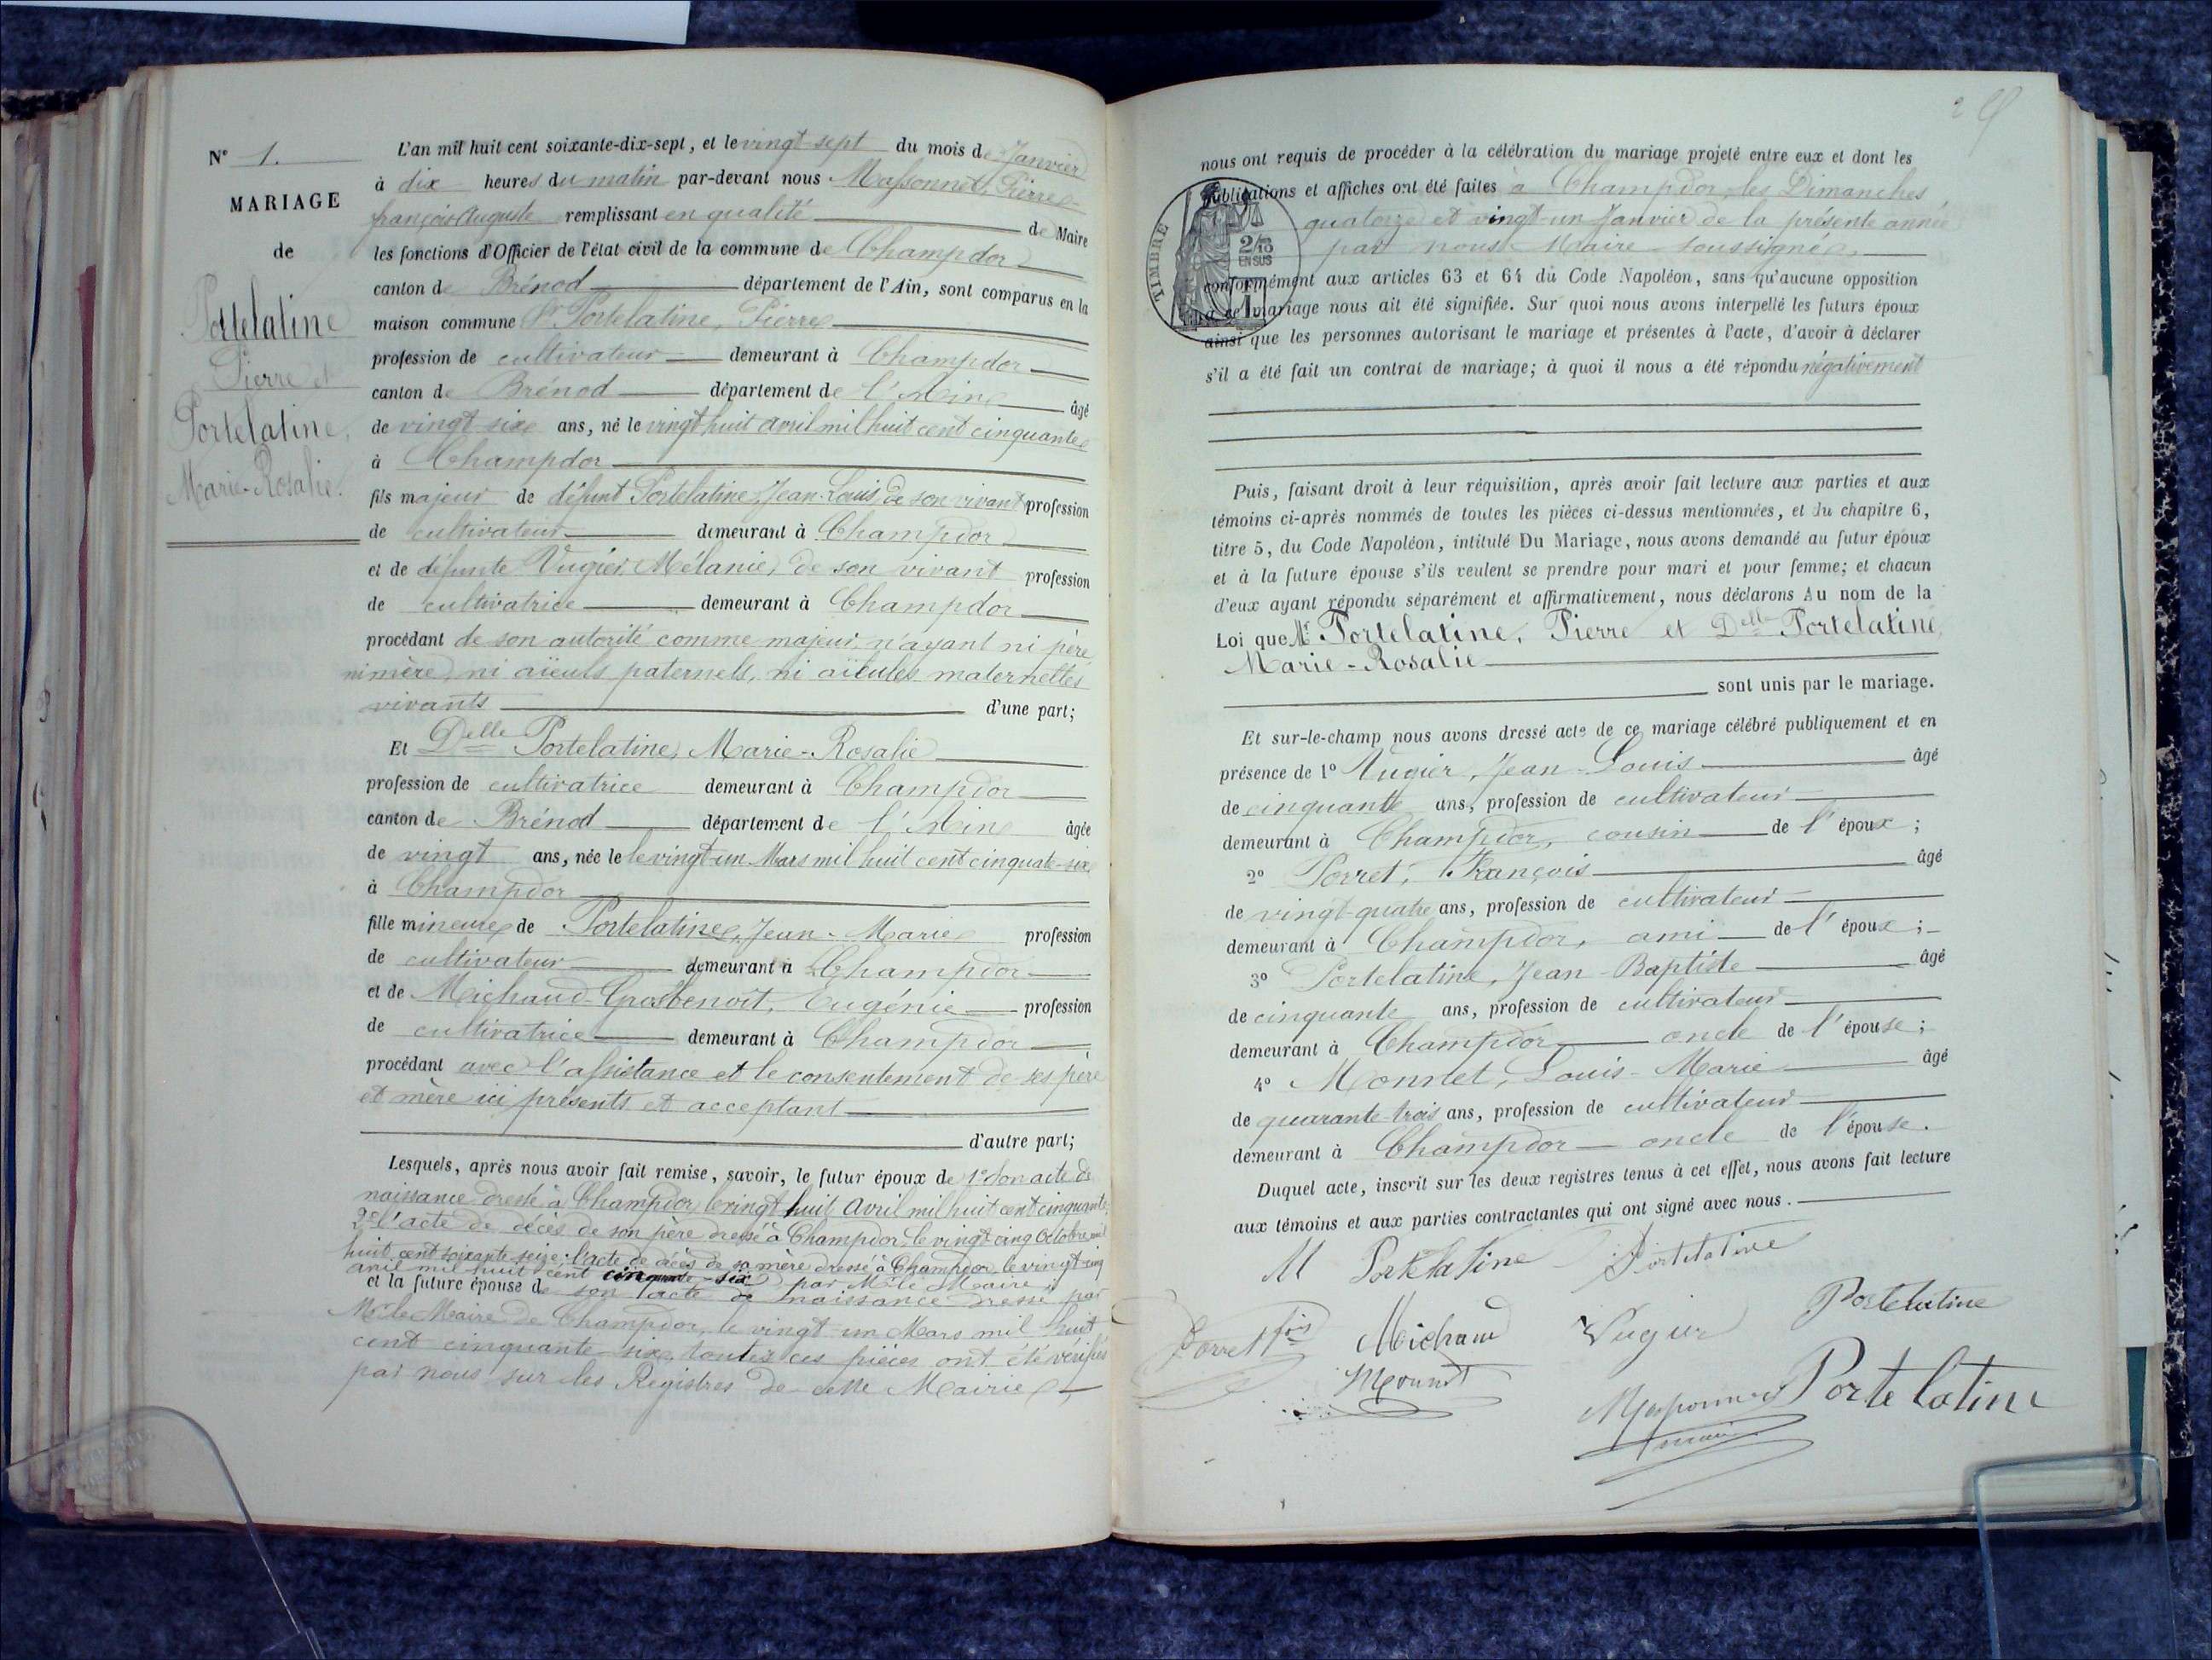 N° 1.
MARIAGE
de
Portelatine
Pierre et
Portelatine,
Marie-Rosalie.
L'an mil huit cent soixante-dix-sept, et le vingt-sept du mois de Janvier
à dix heures du matin par-devant nous Massonnet, Pierre-
françois Auguste remplissant en qualité de Maire
les fonctions d'Officier de l'état civil de la commune de Champdor
canton de Brénod département de l'Ain, sont comparus en la
maison commune Sr Portelatine, Pierre
profession de cultivateur demeurant à Champdor
canton de Brénod département de l'Ain âgé
de vingt six ans, né le vingt huit avril mil huit cent cinquante
à Champdor
fils majeur de défunt Portelatine, Jean-Louis, de son vivant profession
de cultivateur demeurant à Champdor
et de défunte Vugier, Mélanie, de son vivant profession
de cultivatrice demeurant à Champdor
procédant de son autorité comme majeur, n'ayant ni père,
ni mère, ni aïeuls paternels, ni aïeules maternelles
vivants d'une part;
Et Delle Portelatine, Marie-Rosalie
profession de cultivatrice demeurant à Champdor
canton de Brénod département de l'Ain âgée
de vingt ans, née le le vingt-un Mars mil huit cent cinquate-six
à Champdor
fille mineure de Portelatine, Jean-Marie profession
de cultivateur demeurant à Champdor
et de Michaud-Grosbenoît, Eugénie profession
de cultivatrice demeurant à Champdor
procédant avec l'assistance et le consentement de ses père
et mère ici présents et acceptant
d'autre part;
Lesquels, après nous avoir fait remise, savoir, le futur époux de 1° Son acte de
naissance dressé à Champdor, le vingt huit Avril mil huit cent cinquante;
2° l'acte de décès de son père dressé à Champdor, le vingt cinq Octobre mil
huit cent soixante seize; l'acte de décès de sa mère dressé à Champdor, le vingt-cinq
mil huit cent cinquante-six par Mr le Maire;
et la future épouse de son acte de naissance dressé par
Mr le Maire de Champdor, le vingt-un Mars mil huit
cent cinquante-six, toutes ces pièces ont été vérifiés
par nous sur les Registres de cette Mairie
nous ont requis de procéder à la célébration du mariage projeté entre eux et dont les
publications et affiches ont été faites à Champdor, les Dimanches
quatorze et vingt-un Janvier de la présente année
par nous Maire soussigné,
TIMBRE
2/10
EN SUS
conformément aux articles 63 et 64 du Code Napoléon, sans qu'aucune opposition
à ce mariage nous ait été signifiée. Sur quoi nous avons interpellé les futurs époux
ainsi que les personnes autorisant le mariage et présentes à l'acte, d'avoir à déclarer
s'il a été fait un contrat de mariage; à quoi il nous a été répondu négativement
Puis, faisant droit à leur réquisition, après avoir fait lecture aux parties et aux
témoins ci-après nommés de toutes les pièces ci-dessus mentionnées, et du chapitre 6,
titre 5, du Code Napoléon, intitulé Du Mariage, nous avons demandé au futur époux
et à la future épouse s'ils veulent se prendre pour mari et pour femme; et chacun
d'eux ayant répondu séparément et affirmativement, nous déclarons Au nom de la
Loi que Mr Portelatine, Pierre et Delle Portelatine,
Marie-Rosalie
sont unis par le mariage.
Et sur-le-champ nous avons dressé acte de ce mariage célébré publiquement et en
présence de 1° Vugier, Jean-Louis âgé
de cinquante ans, profession de cultivateur
demeurant à Champdor, cousin de l'époux;
2° Porret, François âgé
de vingt-quatre ans, profession de cultivateur
demeurant à Champdor, ami de l'époux;
3° Portelatine, Jean-Baptiste âgé
de cinquante ans, profession de cultivateur
demeurant à Champdor oncle de l'épouse;
4° Monnet, Louis-Marie âgé
de quarante-trois ans, profession de cultivateur
demeurant à Champdor oncle de l'épouse.
Duquel acte, inscrit sur les deux registres tenus à cet effet, nous avons fait lecture
aux témoins et aux parties contractantes qui ont signé avec nous.
M Portelatine Portelatine
Portelatine
Porret fois Michaud Vugier
Portelatine
maire